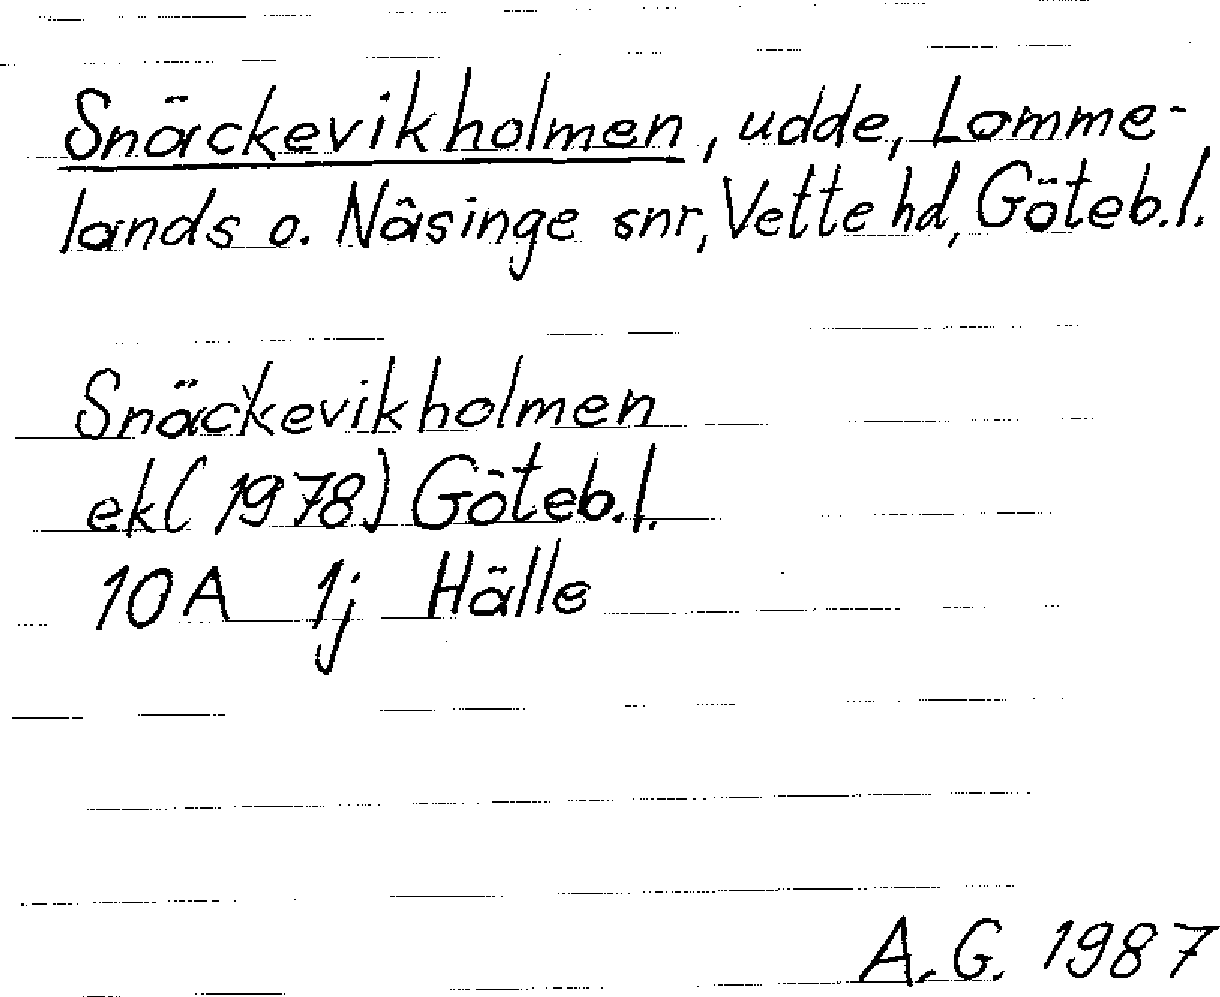 Snäckevikholmen, udde, Lomme-
lands o. Näsinge snr, Vette hd, Göteb.l.
Snäckevikholmen
ek (1978) Göteb.l.
10 A 1j Hälle
A.G. 1987